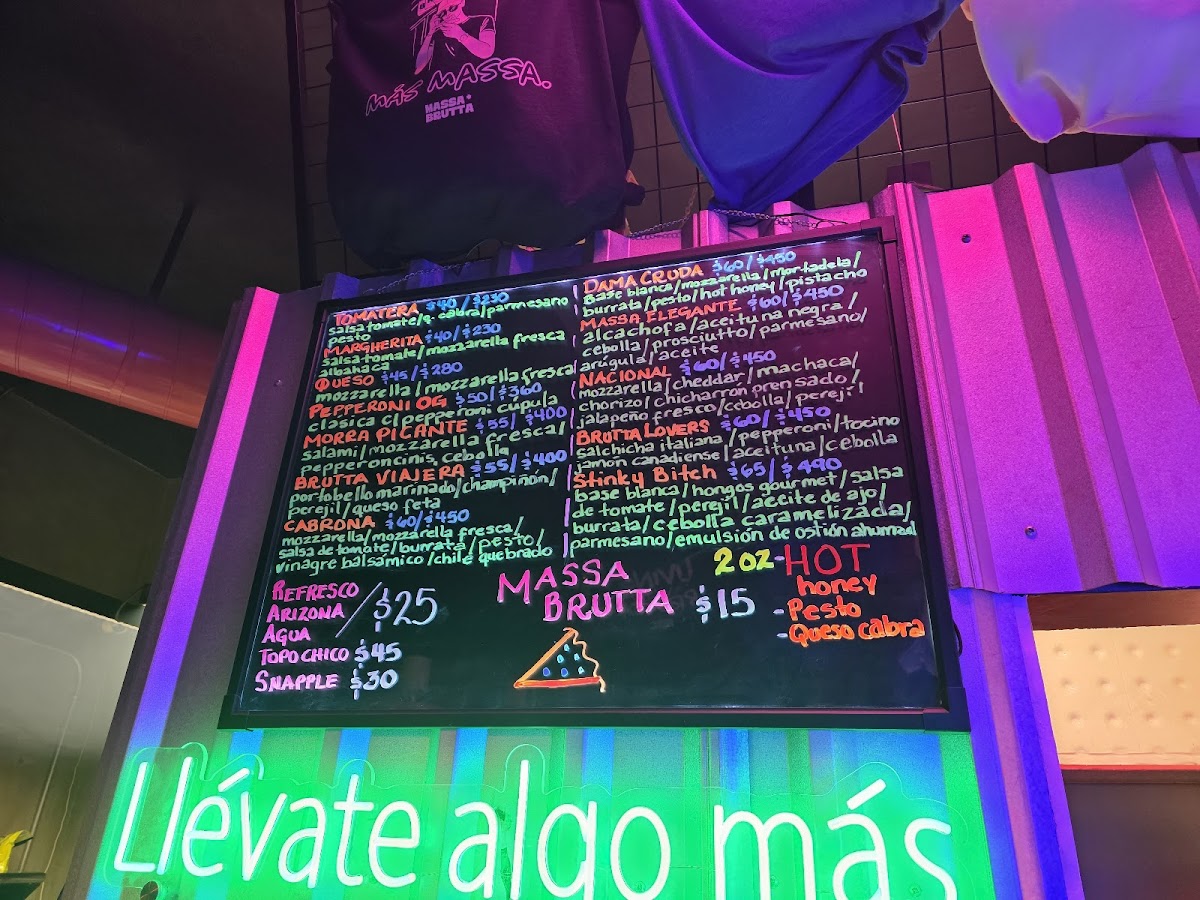 MÁS MASSA.
MASSA
BRUTTA
TOMATERA $40/$230
salsa tomate/q. cabra/parmesano
pesto
MARGHERITA $40/$230
salsa tomate/mozzarella fresca
albahaca
QUESO $45/$280
mozzarella/mozzarella fresca
PEPPERONI OG $50/$360
clasica c/pepperoni cupula
MORRA PICANTE $55/$400
salami/mozzarella fresca/
pepperoncinis, cebolla
BRUTTA VIAJERA $55/$400
portobello marinado/champiñon/
perejil/queso feta
CABRONA $60/$450
mozzarella/mozzarella fresca/
salsa de tomate/burrata/pesto/
vinagre balsámico/chile quebrado
DAMA CRUDA $60/$450
Base blanca/mozzarella/mortadela/
burrata/pesto/hot honey/pistacho
MASSA ELEGANTE $60/$450
alcachofa/aceituna negra/
cebolla/prosciutto/parmesano/
arúgula/aceite
NACIONAL $60/$450
mozzarella/cheddar/machaca/
chorizo/chicharron prensado/
jalapeño fresco/cebolla/perejil
BRUTTA LOVERS $60/$450
salchicha italiana/pepperoni/tocino
jamon canadiense/aceituna/cebolla
Stinky Bitch $65/$490
base blanca/hongos gourmet/salsa
de tomate/perejil/aceite de ajo/
burrata/cebolla caramelizada/
parmesano/emulsión de ostión ahumad
REFRESCO
ARIZONA /$25
AGUA
TOPO CHICO $45
SNAPPLE $30
MASSA
BRUTTA
2oz-HOT
honey
$15 - Pesto
- Queso cabra
Llévate algo más